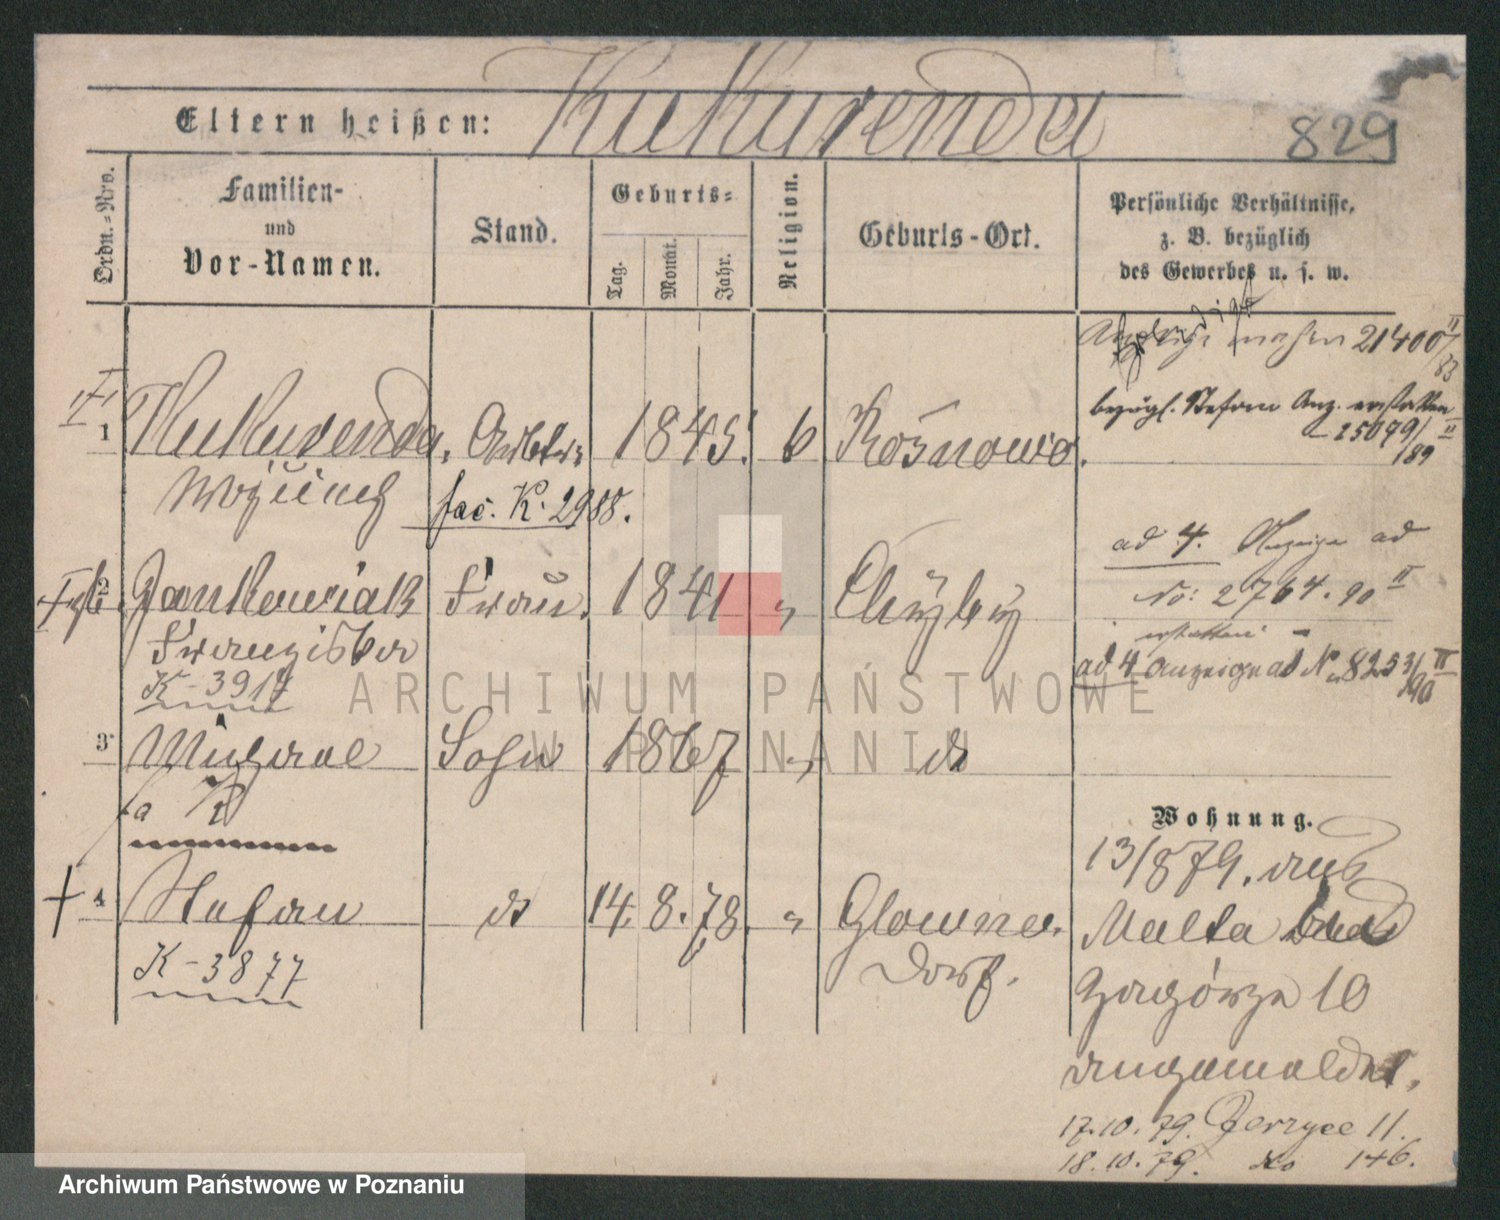 Eltern heißen: Kukurenda
829
Ordn.-Nro.
Familien-
und
Vor-Namen.
Stand.
Geburts-
Tag.
Monat.
Jahr.
Religion.
Geburts-Ort.
Persönliche Verhältnisse,
z. B. bezüglich
des Gewerbes u. s. w.
21400 II/83
1 Kukurenda, Arbtr. 1845. 6 Rośnowo.
Woÿciech
fac. K. 2988.
bezügl. Stefan Anz. erstatten
15079/89 II
2 Jankowiak Frau. 1841 " Chÿbÿ
Franziska
K-3917
ad 4. Anzeige ad
No: 2764.90 II
erstatten
ad 4 Anzeige ad No 8253/90 II
3 Michael Sohn 1867 " do
4 Stefan do 14. 8. 78. " Glowno.
Dorf.
K-3877
Wohnung.
13/8 79. aus
Malta
Zagórze 10
angemeldet,
17.10.79. Jerzyce 11.
18.10.79. do 146.
ARCHIWUM PAŃSTWOWE
W POZNANIU
Archiwum Państwowe w Poznaniu